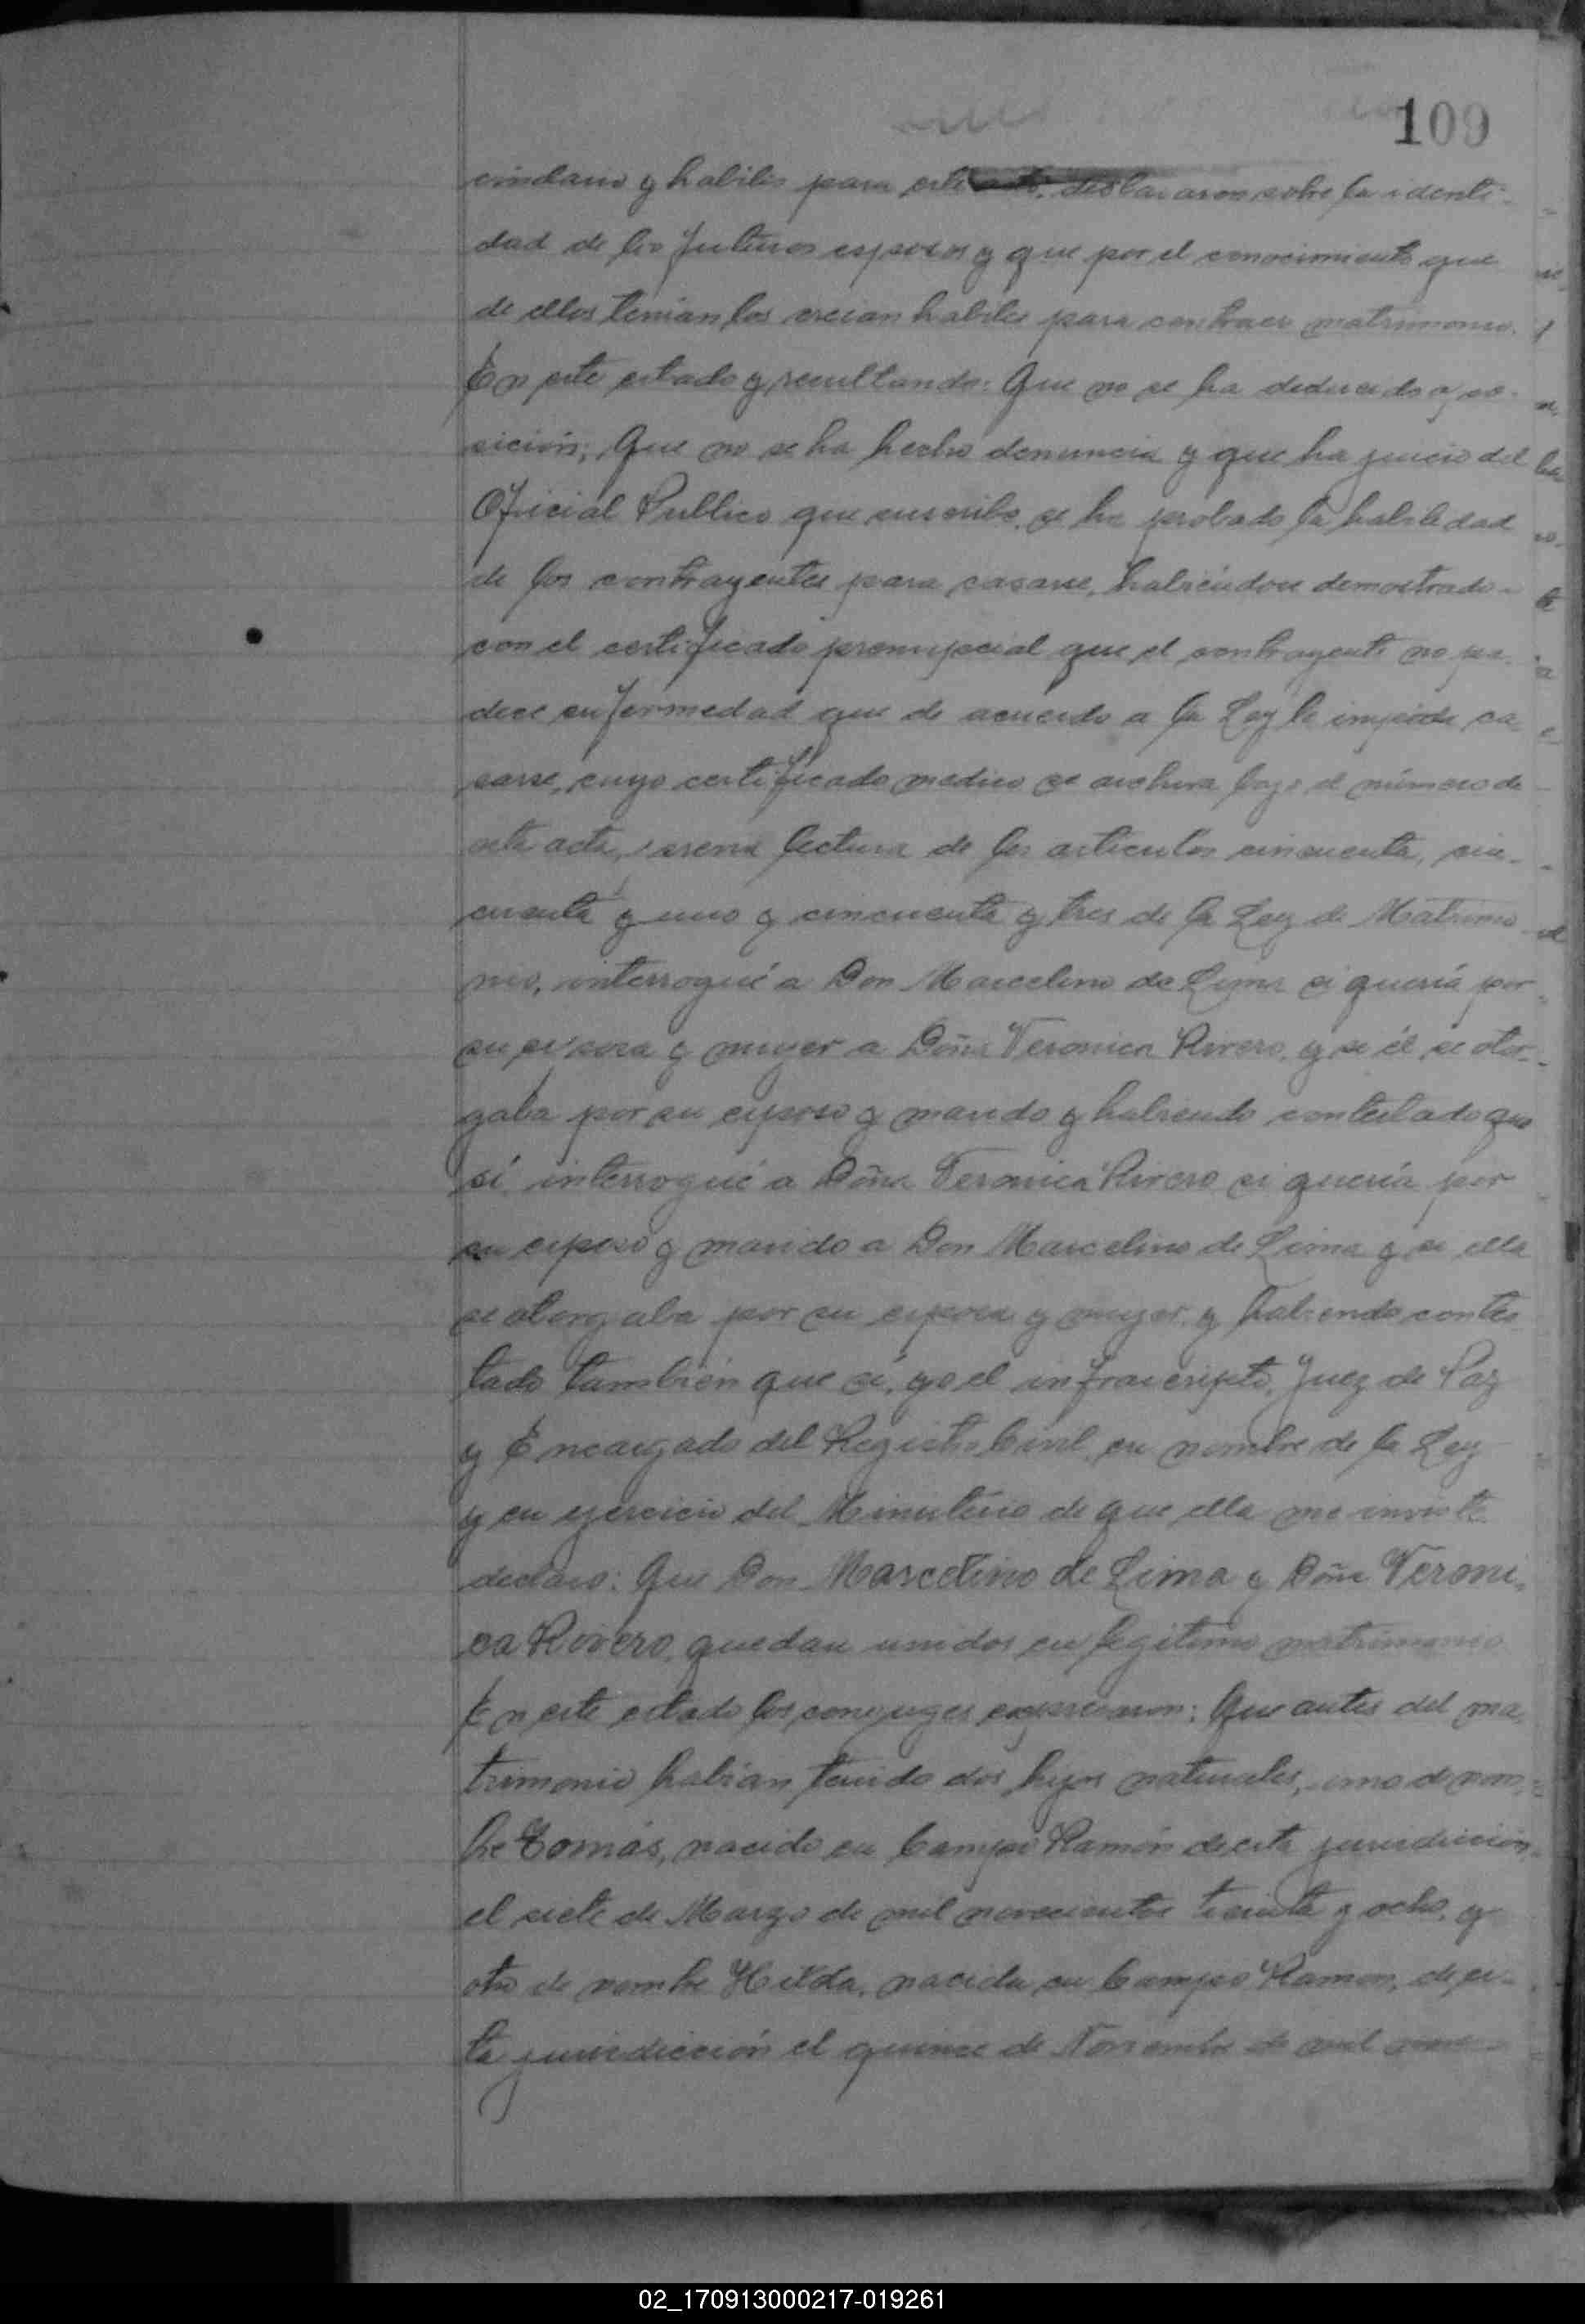 109
cindario y habiles para este acto, declararon sobre la identi-
dad de los futuros esposos y que por el conocimiento que
de ellos tenian los creian habiles para contraer matrimonio.
En este estado y resultando: Que no se ha deducido opo-
sición; Que no se ha hecho denuncia y que ha juicio del
Oficial Publico que suscribe, se ha probado la habilidad
de los contrayentes para casarse, habiéndose demostrado-
con el certificado prenupcial que el contrayente no pa-
dece enfermedad que de acuerdo a la Ley le impida ca-
sarse, cuyo certificado medico se archiva bajo el número de
esta acta, previa lectura de los articulos cincuenta, cin-
cuenta y uno y cincuenta y tres de la Ley de Matrimo-
nio, interrogué a Don Marcelino de Lima si quería por
su esposa y mujer a Doña Veronica Rivero, y si él se otor-
gaba por su esposo y marido y habiendo contestado que
sí, interrogué a Doña Veronica Rivero si quería por
su esposo y marido a Don Marcelino de Lima y si ella
se otorgaba por su esposa y mujer, y habiendo contes-
tado también que sí, yo el infrascripto, Juez de Paz
y Encargado del Registro Civil, en nombre de la Ley
y en ejercicio del Ministerio de que ella me inviste
declaro: Que Don Marcelino de Lima y Doña Veroni-
ca Rivero, quedan unidos en legitimo matrimonio
En este estado los conyuges expresaron: Que antes del ma-
trimonio habían tenido dos hijos naturales, uno de nom-
bre Tomás, nacido en Campo Ramón de esta jurisdicción,
el siete de Marzo de mil novecientos treinta y ocho, y
otro de nombre Hilda, nacida en Campo Ramon, de es-
ta jurisdicción el quince de Noviembre de mil nove-
02_170913000217-019261